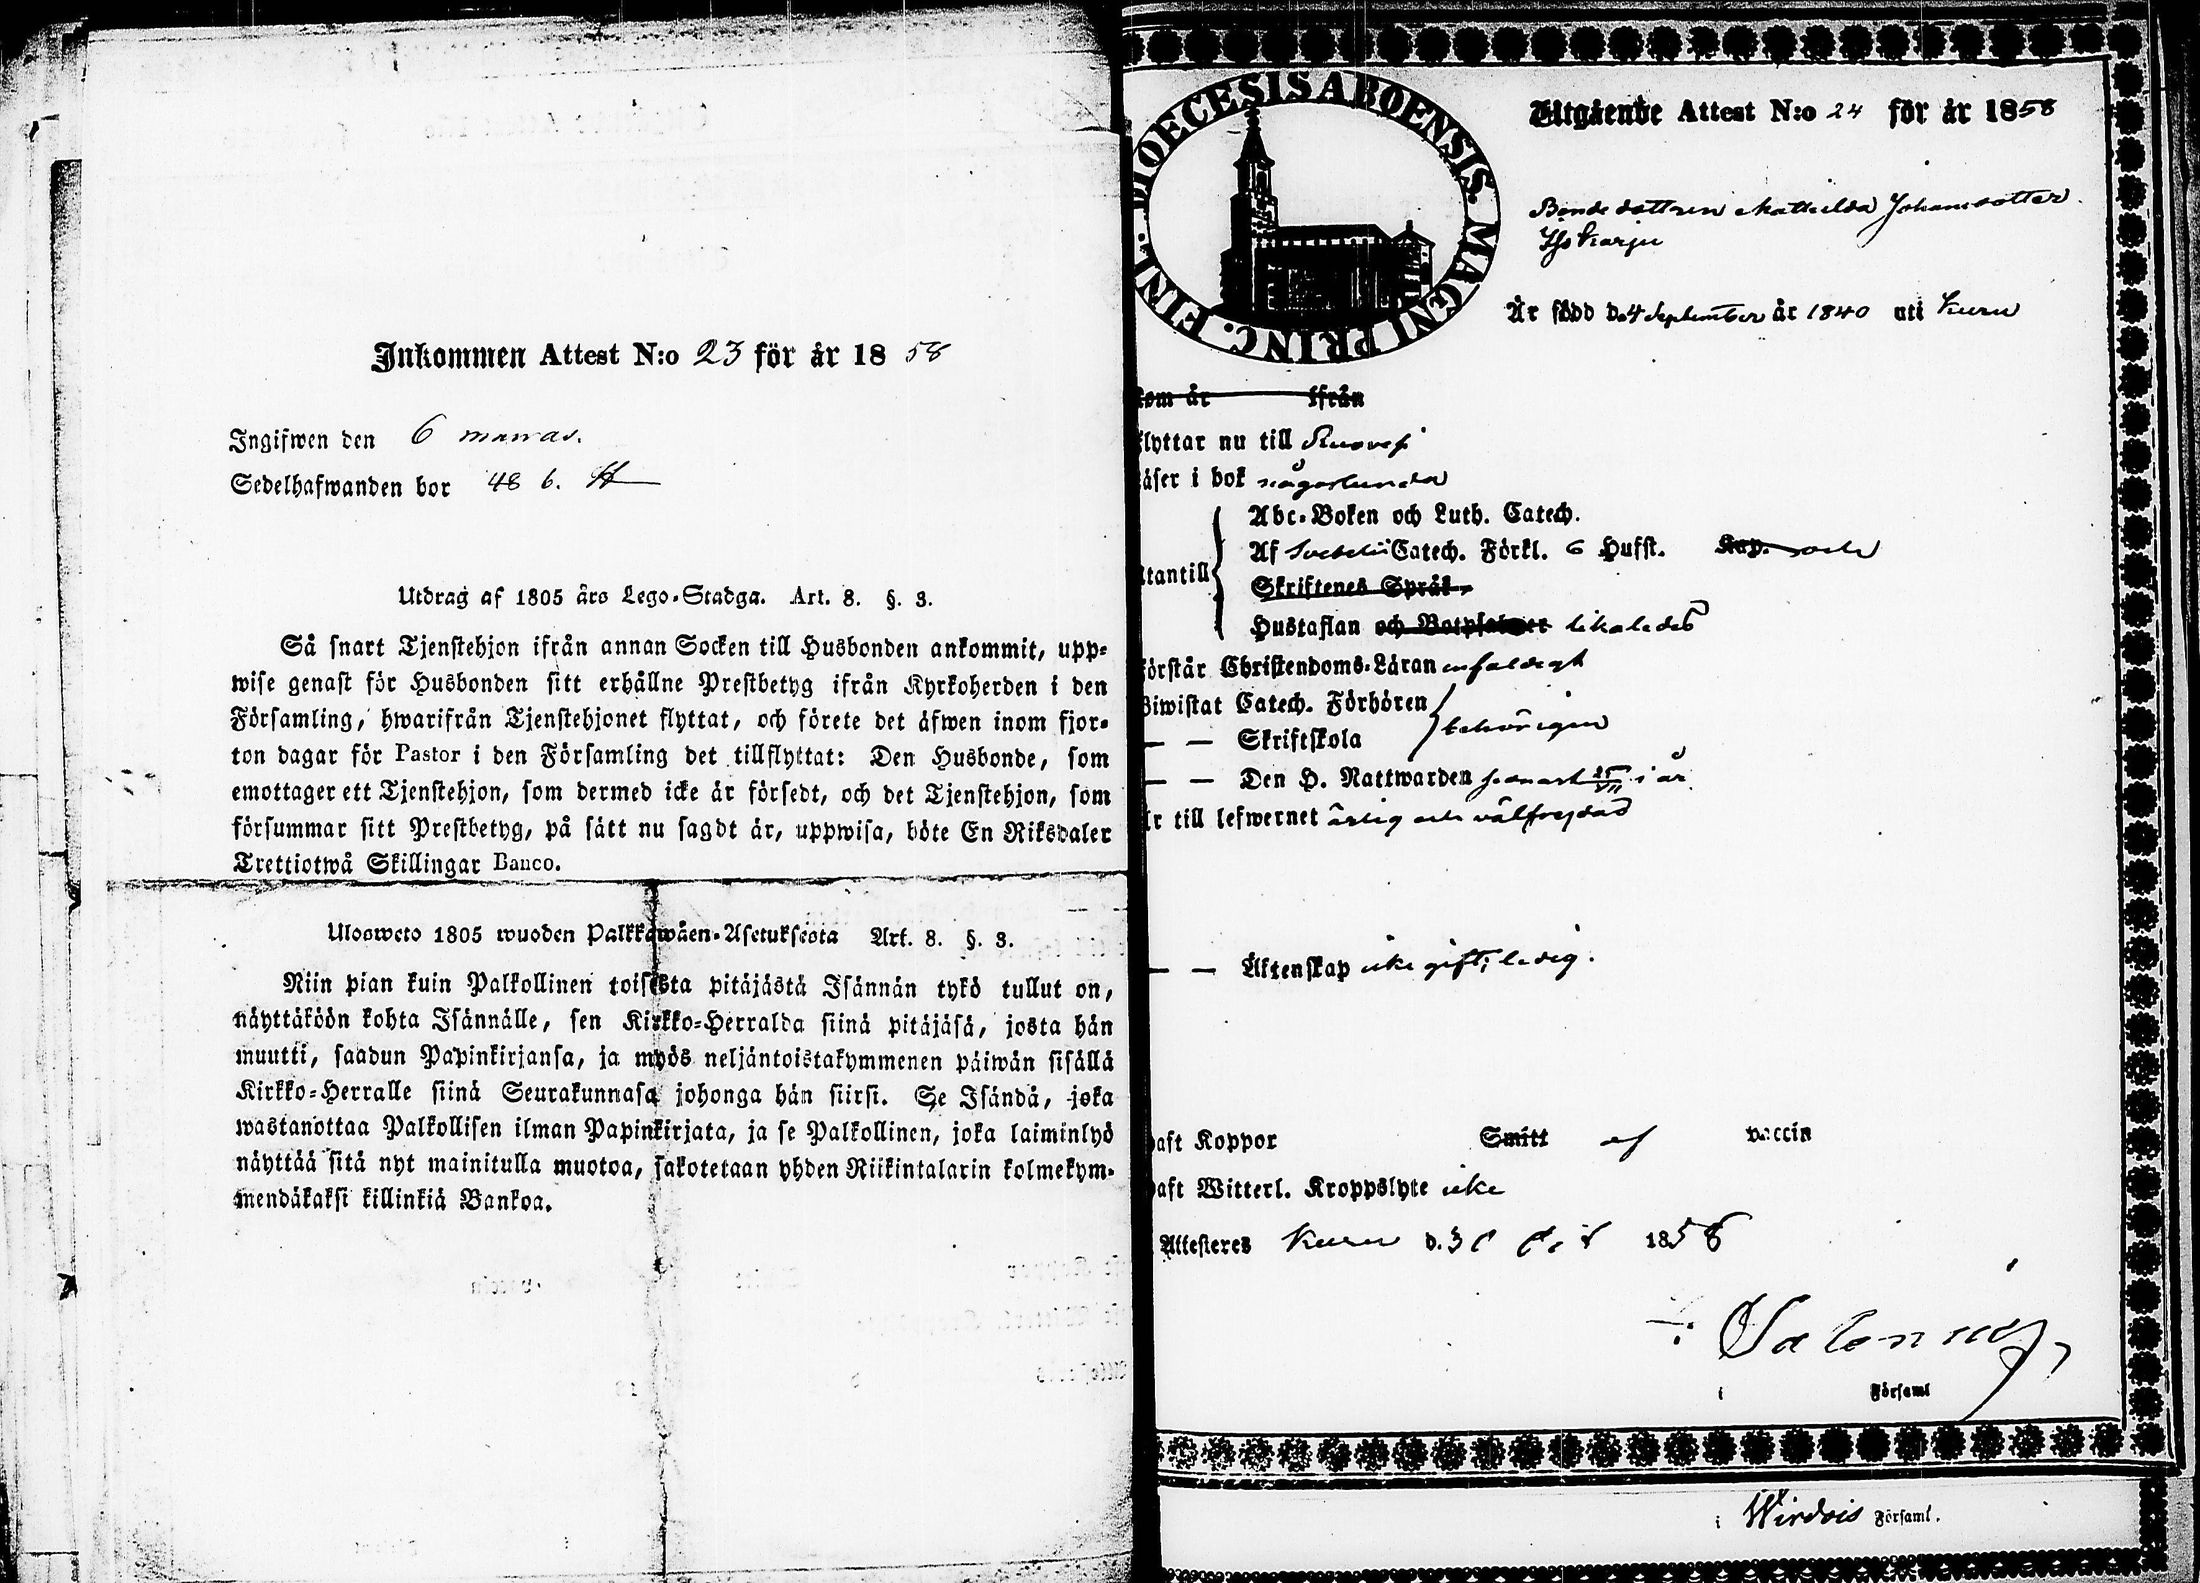 Inkommen Attest N:o 23 för år 1858
Ingifwen den 6
Sedelhafwanden bor 48 b.
Utdrag af 1805 års Lego-Stadga. Art. 8. §. 3.
Så snart Tjenstehjon ifrån annan Socken till Husbonden ankommit, upp-
wise genast för Husbonden sitt erhållne Prestbetyg ifrån Kyrkoherden i den
Församling, hwarifrån Tjenstehjonet flyttat, och förete det äfwen inom fjor-
ton dagar för Pastor i den Församling det tillflyttat: Den Husbonde, som
emottager ett Tjenstehjon, som dermed icke är försedt, och det Tjenstehjon, som
försummar sitt Prestbetyg, på sätt nu sagdt är, uppwisa, böte En Riksdaler
Trettiotwå Skillingar Banco.
Ulosweto 1805 wuoden Palkkawäen-Asetuksesta Art. 8. §. 3.
Niin pian kuin Palkollinen toisesta pitäjästä Isännän tykö tullut on,
näyttäköön kohta Isännälle, sen Kirkko-Herralda siinä pitäjäsä, josta hän
muutti, saadun Papinkirjansa, ja myös neljäntoistakymmenen päiwän sisällä
Kirkko-Herralle siinä Seurakunnasa johonga hän siirsi. Se Isändä, joka
wastanottaa Palkollisen ilman Papinkirjata, ja se Palkollinen, joka laiminlyö
näyttää sitä nyt mainitulla muotoa, sakotetaan yhden Riikintalarin kolmekym-
mendäkaksi killinkiä Bankoa.
DIOECESIS ABOENSIS. MAGNI PRINC. FINL.
Utgående Attest N:o 24 för år 1858
Bonde dottren Mathilda Johansdotter
Är född d. 4 September år 1840 uti Kuru
kom år ifrån
flyttar nu till Ruovesi
läser i bok någorlunda
Abc-Boken och Luth. Catech.
Af Svebelii Catech. Förkl. 6 Hufst. Kap. och
utantill
Skriftenes Språk
Hustaflan och Botpsalmer likaledes
förstår Christendoms-Läran enfaldigt
Biwistat Catech. Förhören
— — Skriftskola behörigen
— — Den H. Nattwarden senast 25/VII i år
Är till lefwernet ärlig och välfrejdad
— — Äktenskap icke gift; ledig.
haft Koppor Smitt af vaccin
haft Witterl. Kroppslyte icke
Attesteres Kuru d. 1858
i Församl
i Wirdois Församl.